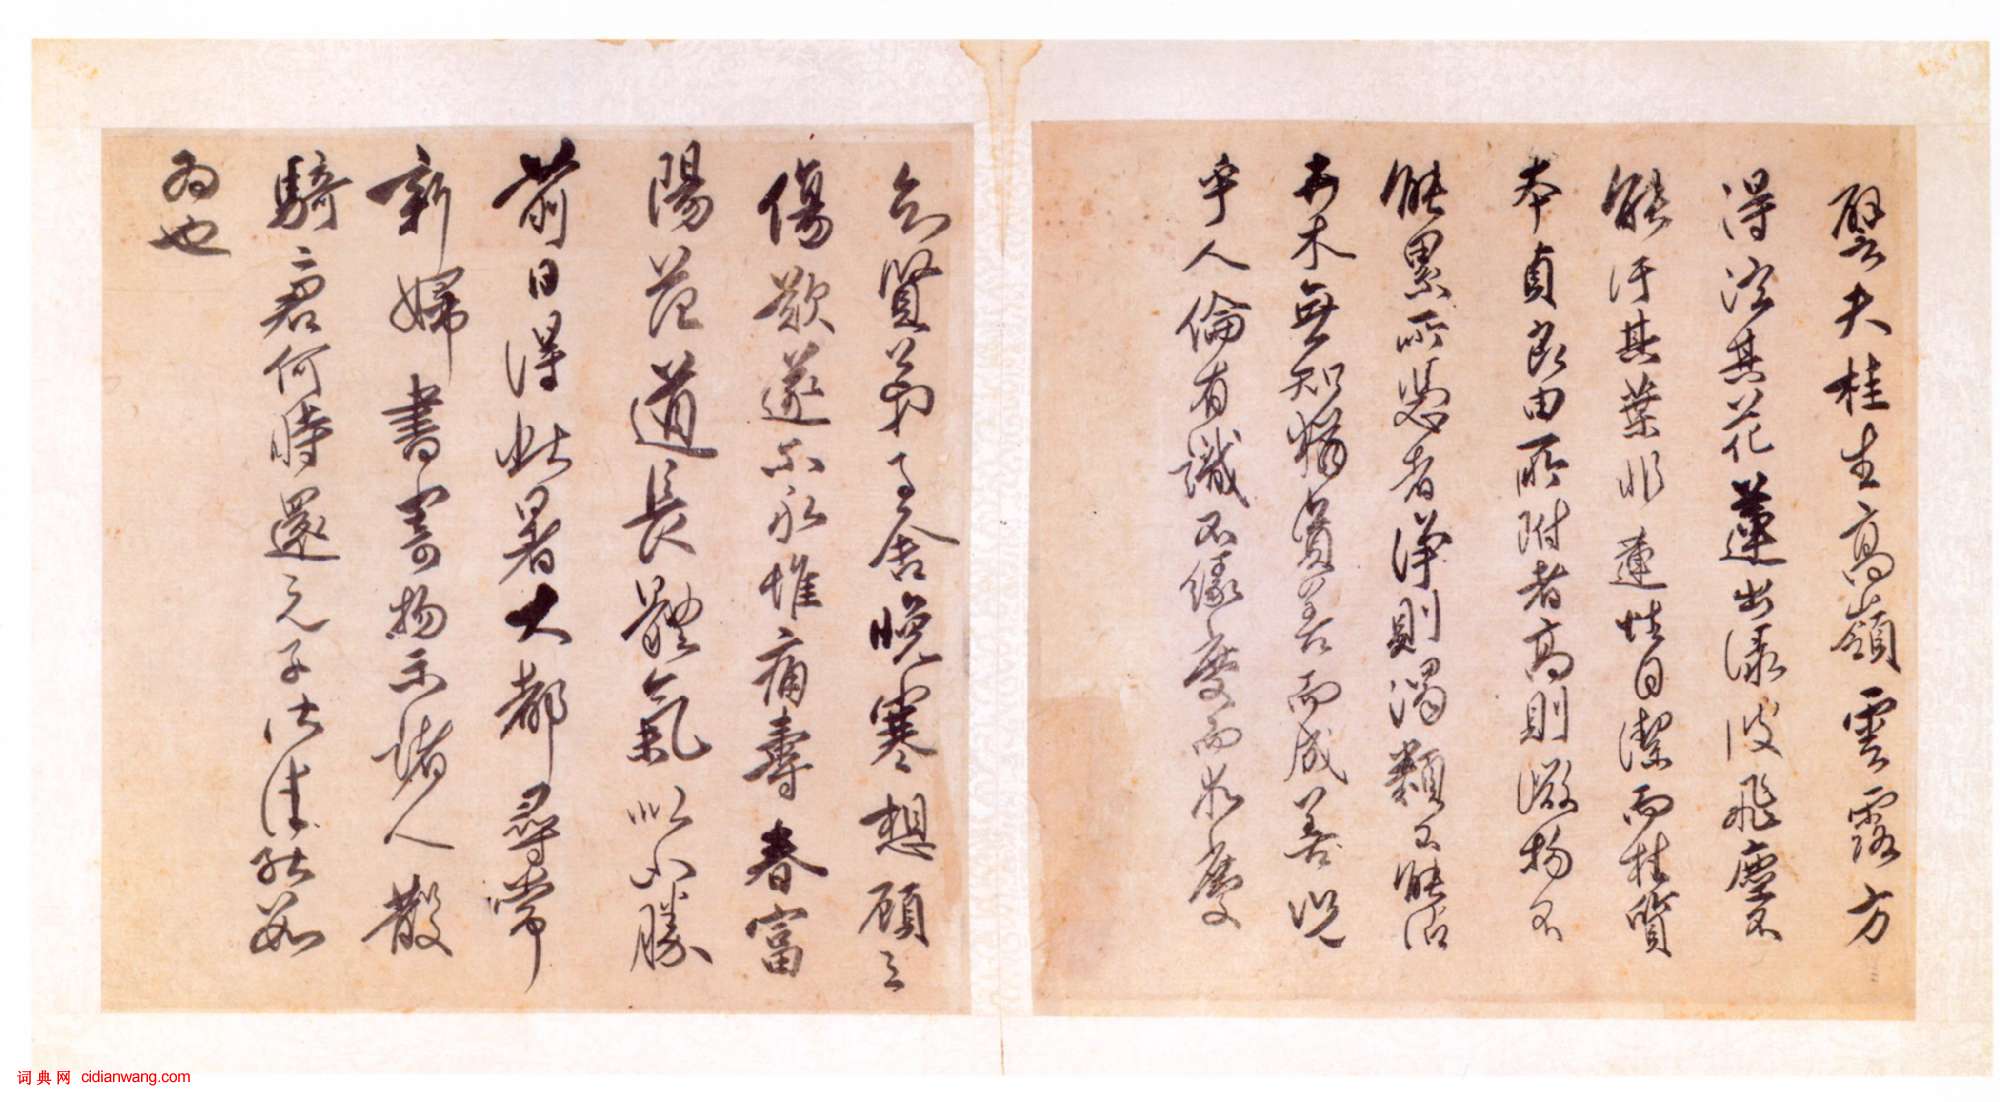 譬夫桂生高嶺雲露方
得泫其花蓮出淥波飛塵不
能汙其葉非蓮性自潔而桂質
本貞良由所附者高則微物不
能累所憑者淨則濁類不能沾
卉木無知猶資善而成善況
乎人倫有識不緣慶而求慶
賢弟舍晚寒想顧
傷歎遂不永惟痛壽春富
陽道長體氣以小勝
前日得暑大都尋常
新婦書寄物示諸人散
騎君何時還元子佳
為也
词典网 cidianwang.com